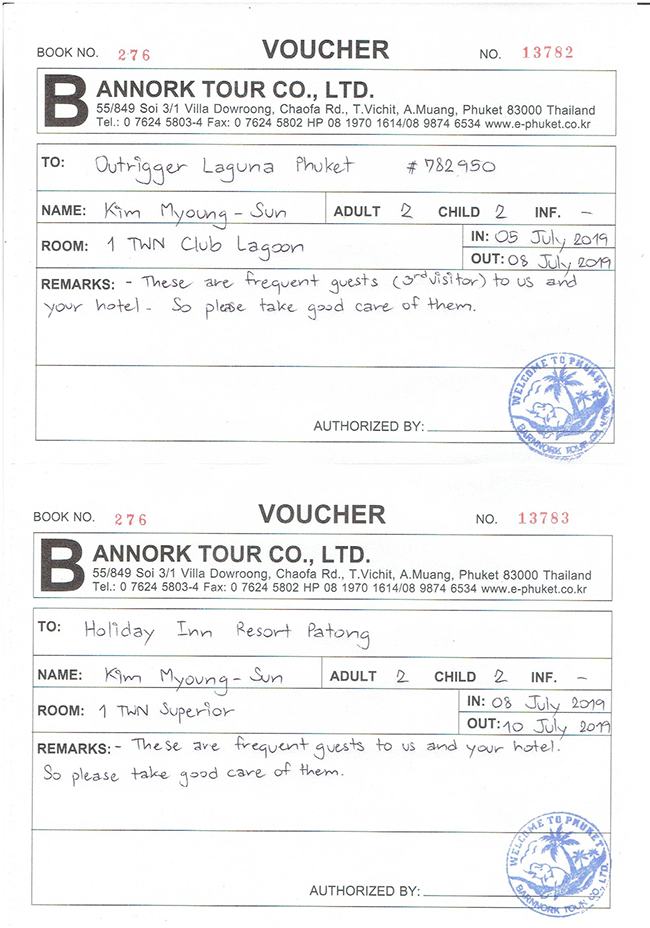 BOOK NO. 276 VOUCHER NO. 13782
BANNORK TOUR CO., LTD.
55/849 Soi 3/1 Villa Dowroong, Chaofa Rd., T.Vichit, A.Muang, Phuket 83000 Thailand
Tel.: 0 7624 5803-4 Fax: 0 7624 5802 HP 08 1970 1614/08 9874 6534 www.e-phuket.co.kr
TO: Outrigger Laguna Phuket #782950
NAME: Kim Myoung-Sun ADULT 2 CHILD 2 INF. -
ROOM: 1 TWN Club Lagoon IN: 05 July 2019
OUT: 08 July 2019
REMARKS: - These are frequent guests (3rd visitor) to us and
your hotel. So please take good care of them.
WELCOME TO PHUKET
BARNNORK TOUR CO., LTD.
AUTHORIZED BY:
BOOK NO. 276 VOUCHER NO. 13783
BANNORK TOUR CO., LTD.
55/849 Soi 3/1 Villa Dowroong, Chaofa Rd., T.Vichit, A.Muang, Phuket 83000 Thailand
Tel.: 0 7624 5803-4 Fax: 0 7624 5802 HP 08 1970 1614/08 9874 6534 www.e-phuket.co.kr
TO: Holiday Inn Resort Patong
NAME: Kim Myoung-Sun ADULT 2 CHILD 2 INF. -
ROOM: 1 TWN Superior IN: 08 July 2019
OUT: 10 July 2019
REMARKS: - These are frequent guests to us and your hotel.
So please take good care of them.
WELCOME TO PHUKET
BARNNORK TOUR CO., LTD.
AUTHORIZED BY: